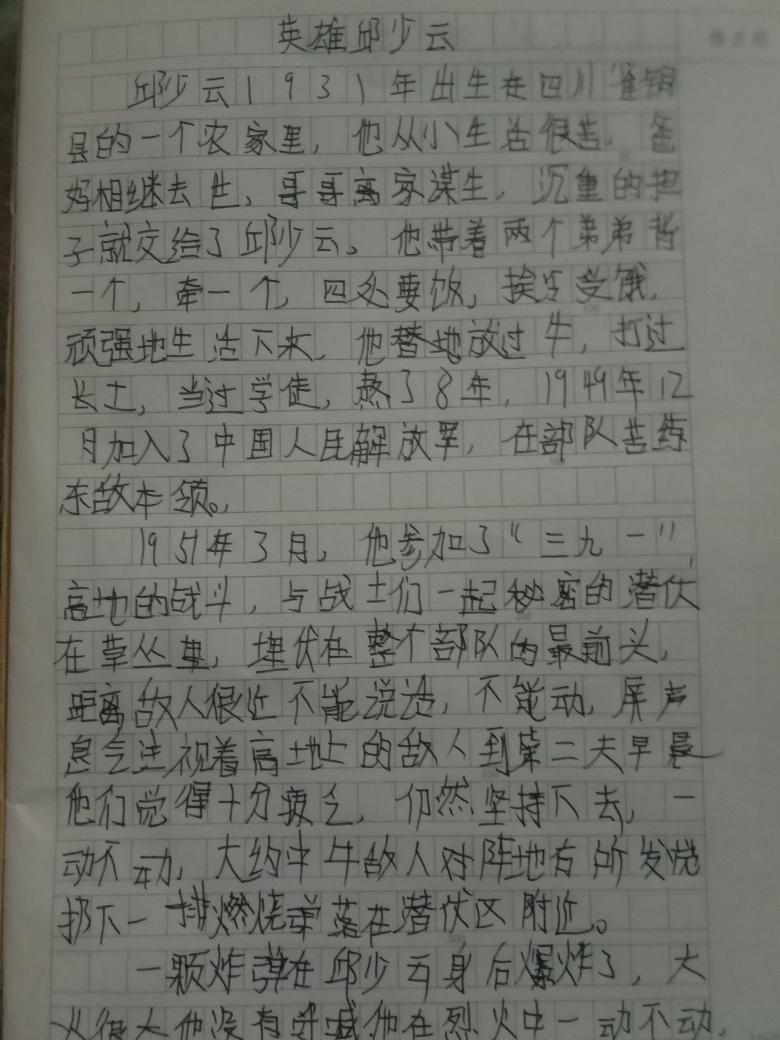 英雄邱少云
邱少云1931年出生在四川省铜
县的一个农家里，他从小生活很苦，爸
妈相继去世，哥哥离家谋生，沉重的担
子就交给了邱少云。他带着两个弟弟背
一个，牵一个，四处要饭，挨冷受饿，
顽强地生活下来，他替地放过牛，打过
长工，当过学徒，熬了8年，1949年12
月加入了中国人民解放军，在部队苦练
杀敌本领。
1951年3月，他参加了“三九一”
高地的战斗，与战士们一起秘密的潜伏
在草丛里，埋伏在整个部队的最前头，
距离敌人很近不能说话，不能动，屏声
息气注视着高地上的敌人到第二天早晨
他们觉得十分疲乏，仍然坚持下去，一
动不动，大约中午敌人对阵地有所发觉
扔下一排燃烧弹落在潜伏区附近。
一颗炸弹在邱少云身后爆炸了，大
火很大他没有呼喊他在烈火中一动不动，